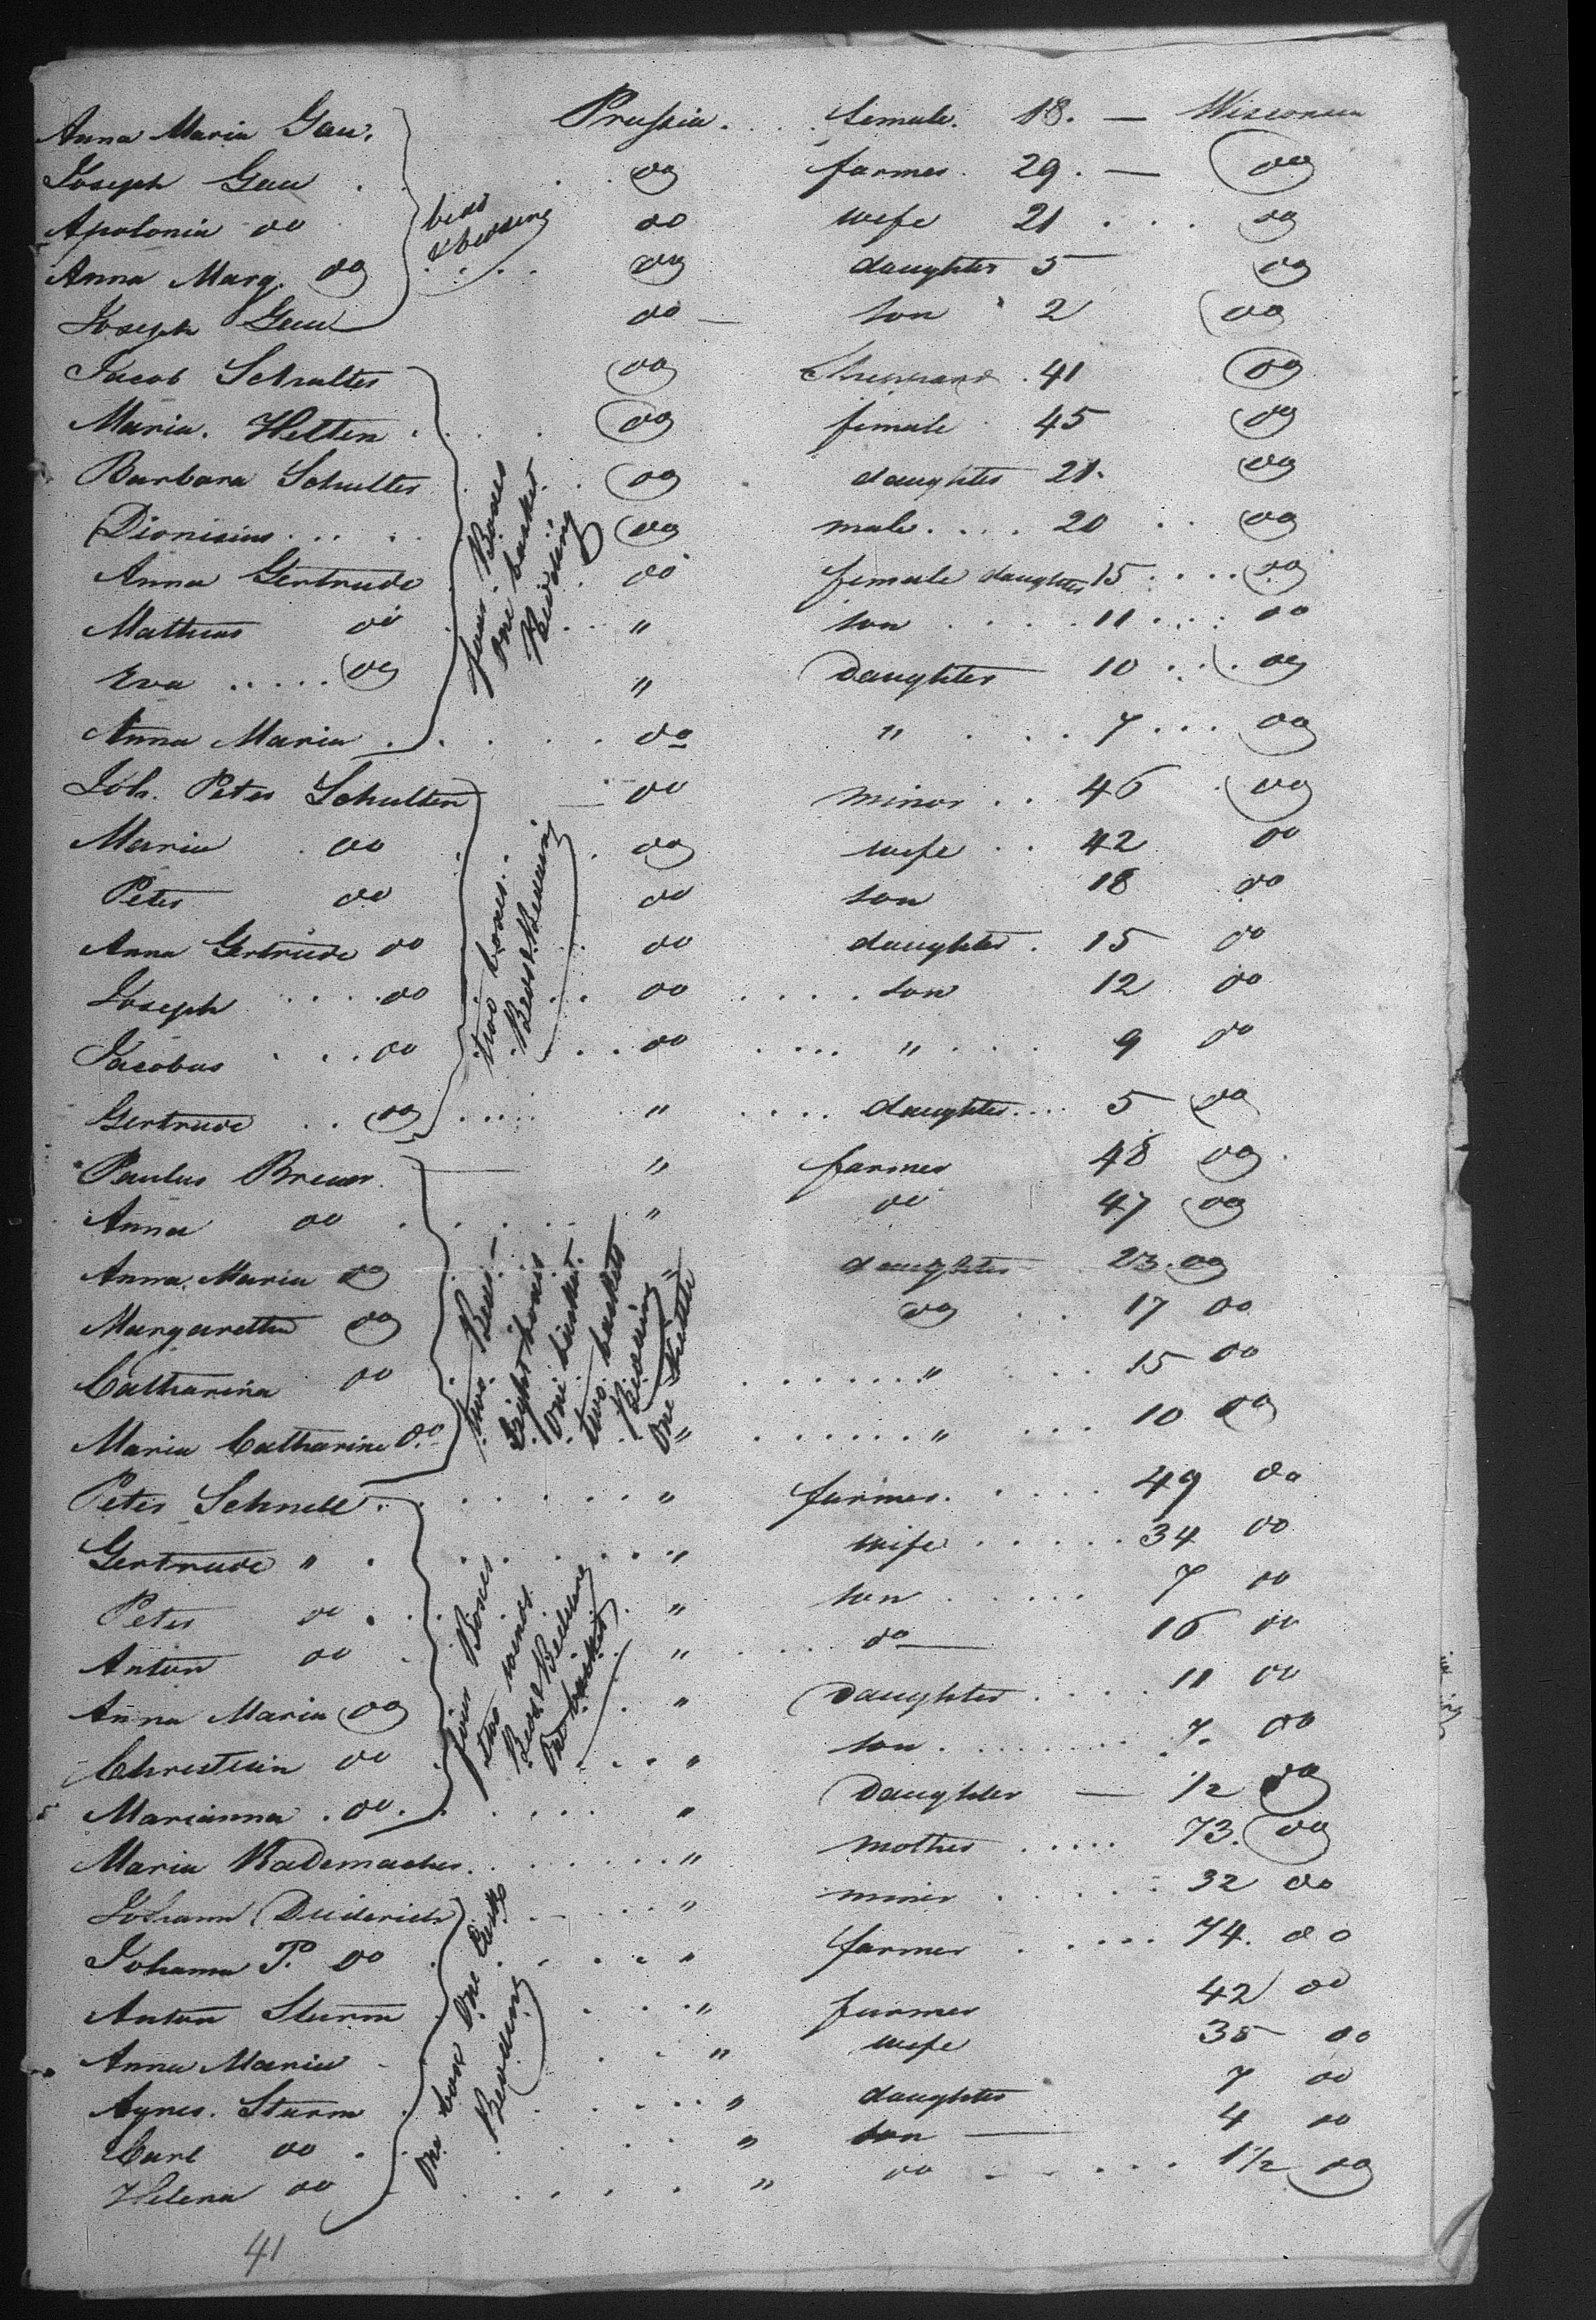 Anna Maria Gau. Prussia. female. 18. — Wisconsin
Joseph Gau do farmer. 29. — do
Apolonia do do wife 21 do
Anna Marg. do do daughter 5 do
Joseph Gau do — son 2 do
bed & bedding
Jacob Schultes do 41 do
Maria. Helten do female 45 do
Barbara Schultes do daughter 21. do
Dionisius do male 20 do
Anna Gertrude do female daughter 15 do
Mathias do " son 11 do
Eva do " daughter 10 do
Anna Maria do " 7 do
four Boxes
one basket
Bedding
Joh. Peter Schulten — do minor 46 do
Maria do do wife 42 do
Peter do do son 18 do
Anna Gertrude do do daughter. 15 do
Joseph do do son 12 do
Jacobus do do " 9 do
Gertrude do " daughter 5 do
two boxes
Bed & Bedding
Paulus Breuer " farmer 48 do
Anna do " do 47 do
Anna Maria do " daughter 23. do
Margaretha do do 17 do
Catharina do " 15 do
Maria Catharine do " " 10 do
two Beds —
Eight boxes
One basket.
two baskets
Bedding
One
Peter Schnell. " farmer. 49 do
Gertrude " " wife 34 do
Peter do " son 7 do
Anton do " do — 16 do
Anna Maria do " Daughter 11 do
Christian do " son 7. do
Marianna do " Daughter — 1/2 do
four Boxes
two
Bed & Bedding
One basket
Maria Rademacher " mother 73. do
Johann Diederich " miner 32 do
Johann P. do " farmer 74. do
Anton Sturm " farmer 42 do
Anna Maria " wife 38 do
Agnes. Sturm " daughter 7 do
Carl do " son — 4 do
Helena do " do 1 1/2 do
One box One
Bedding
41